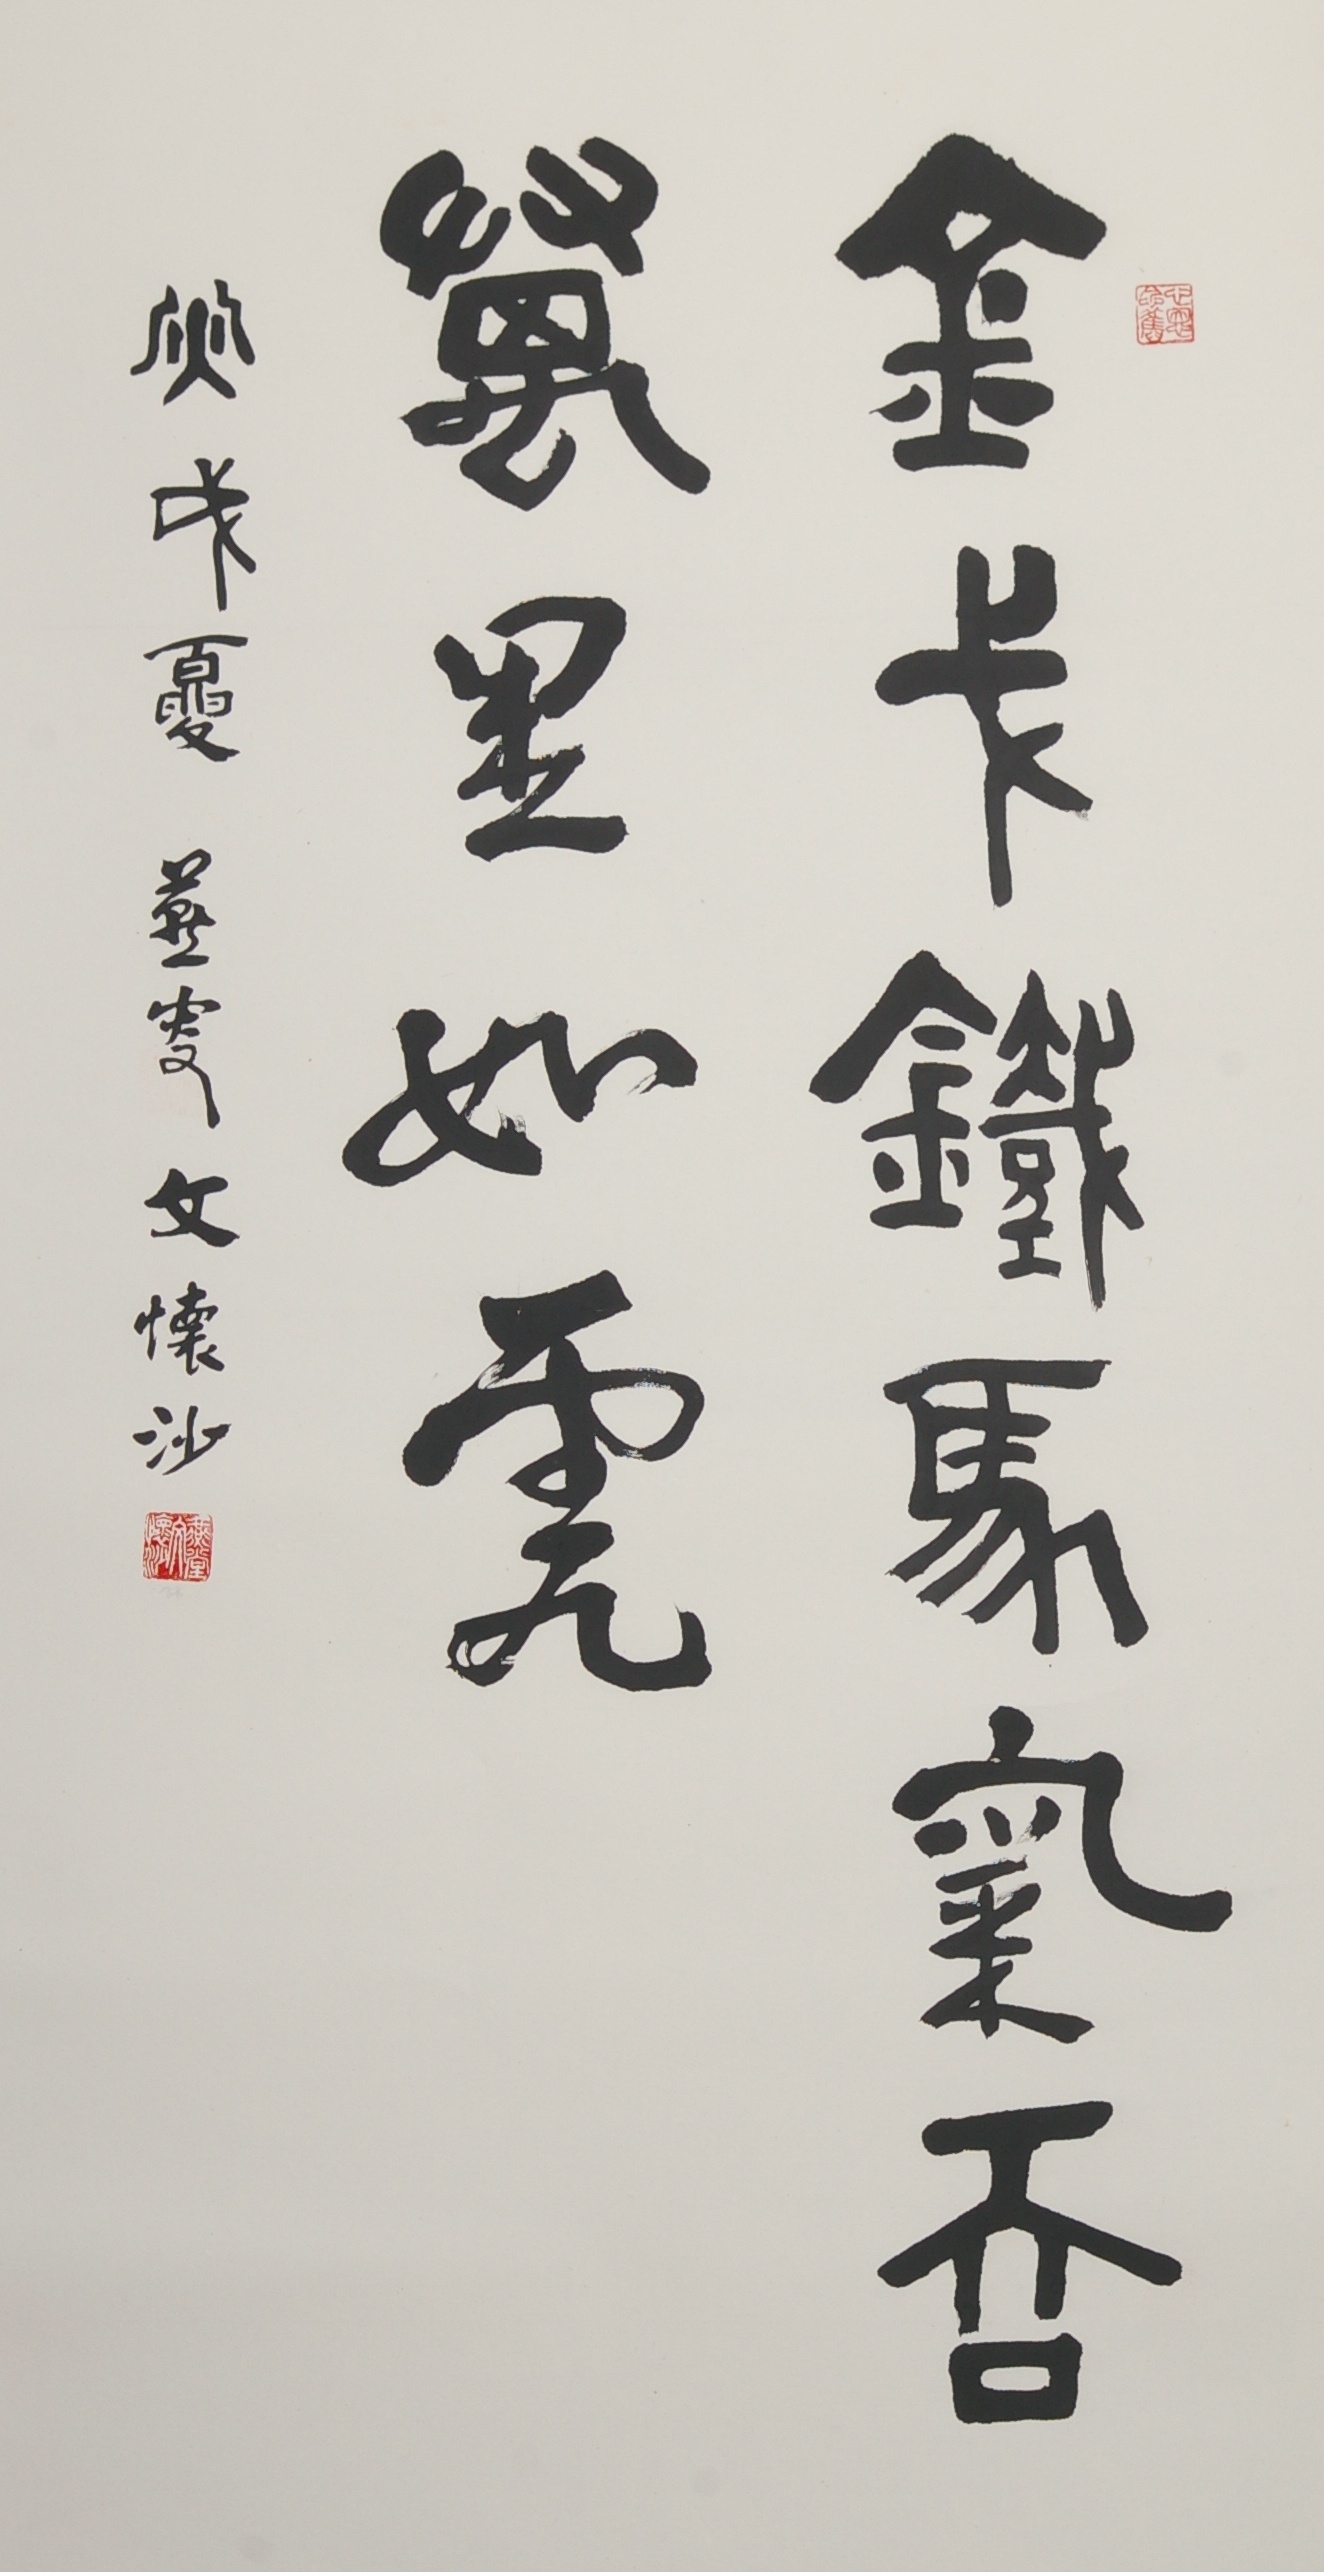 金戈鐵馬氣吞
萬里如虎
庚戌夏 燕叟文懷沙